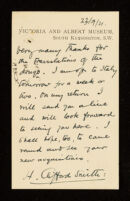 23/9/21
VICTORIA AND ALBERT MUSEUM,
SOUTH KENSINGTON, S.W.
Very many thanks for
the translations of the
. I am off to Italy
tomorrow for a week or
two. On my return I
will send you a line
and will look forward
to seeing you here. I
shall hope, too, to come
round and see your
new acquisitions.
A. Clifford Smith